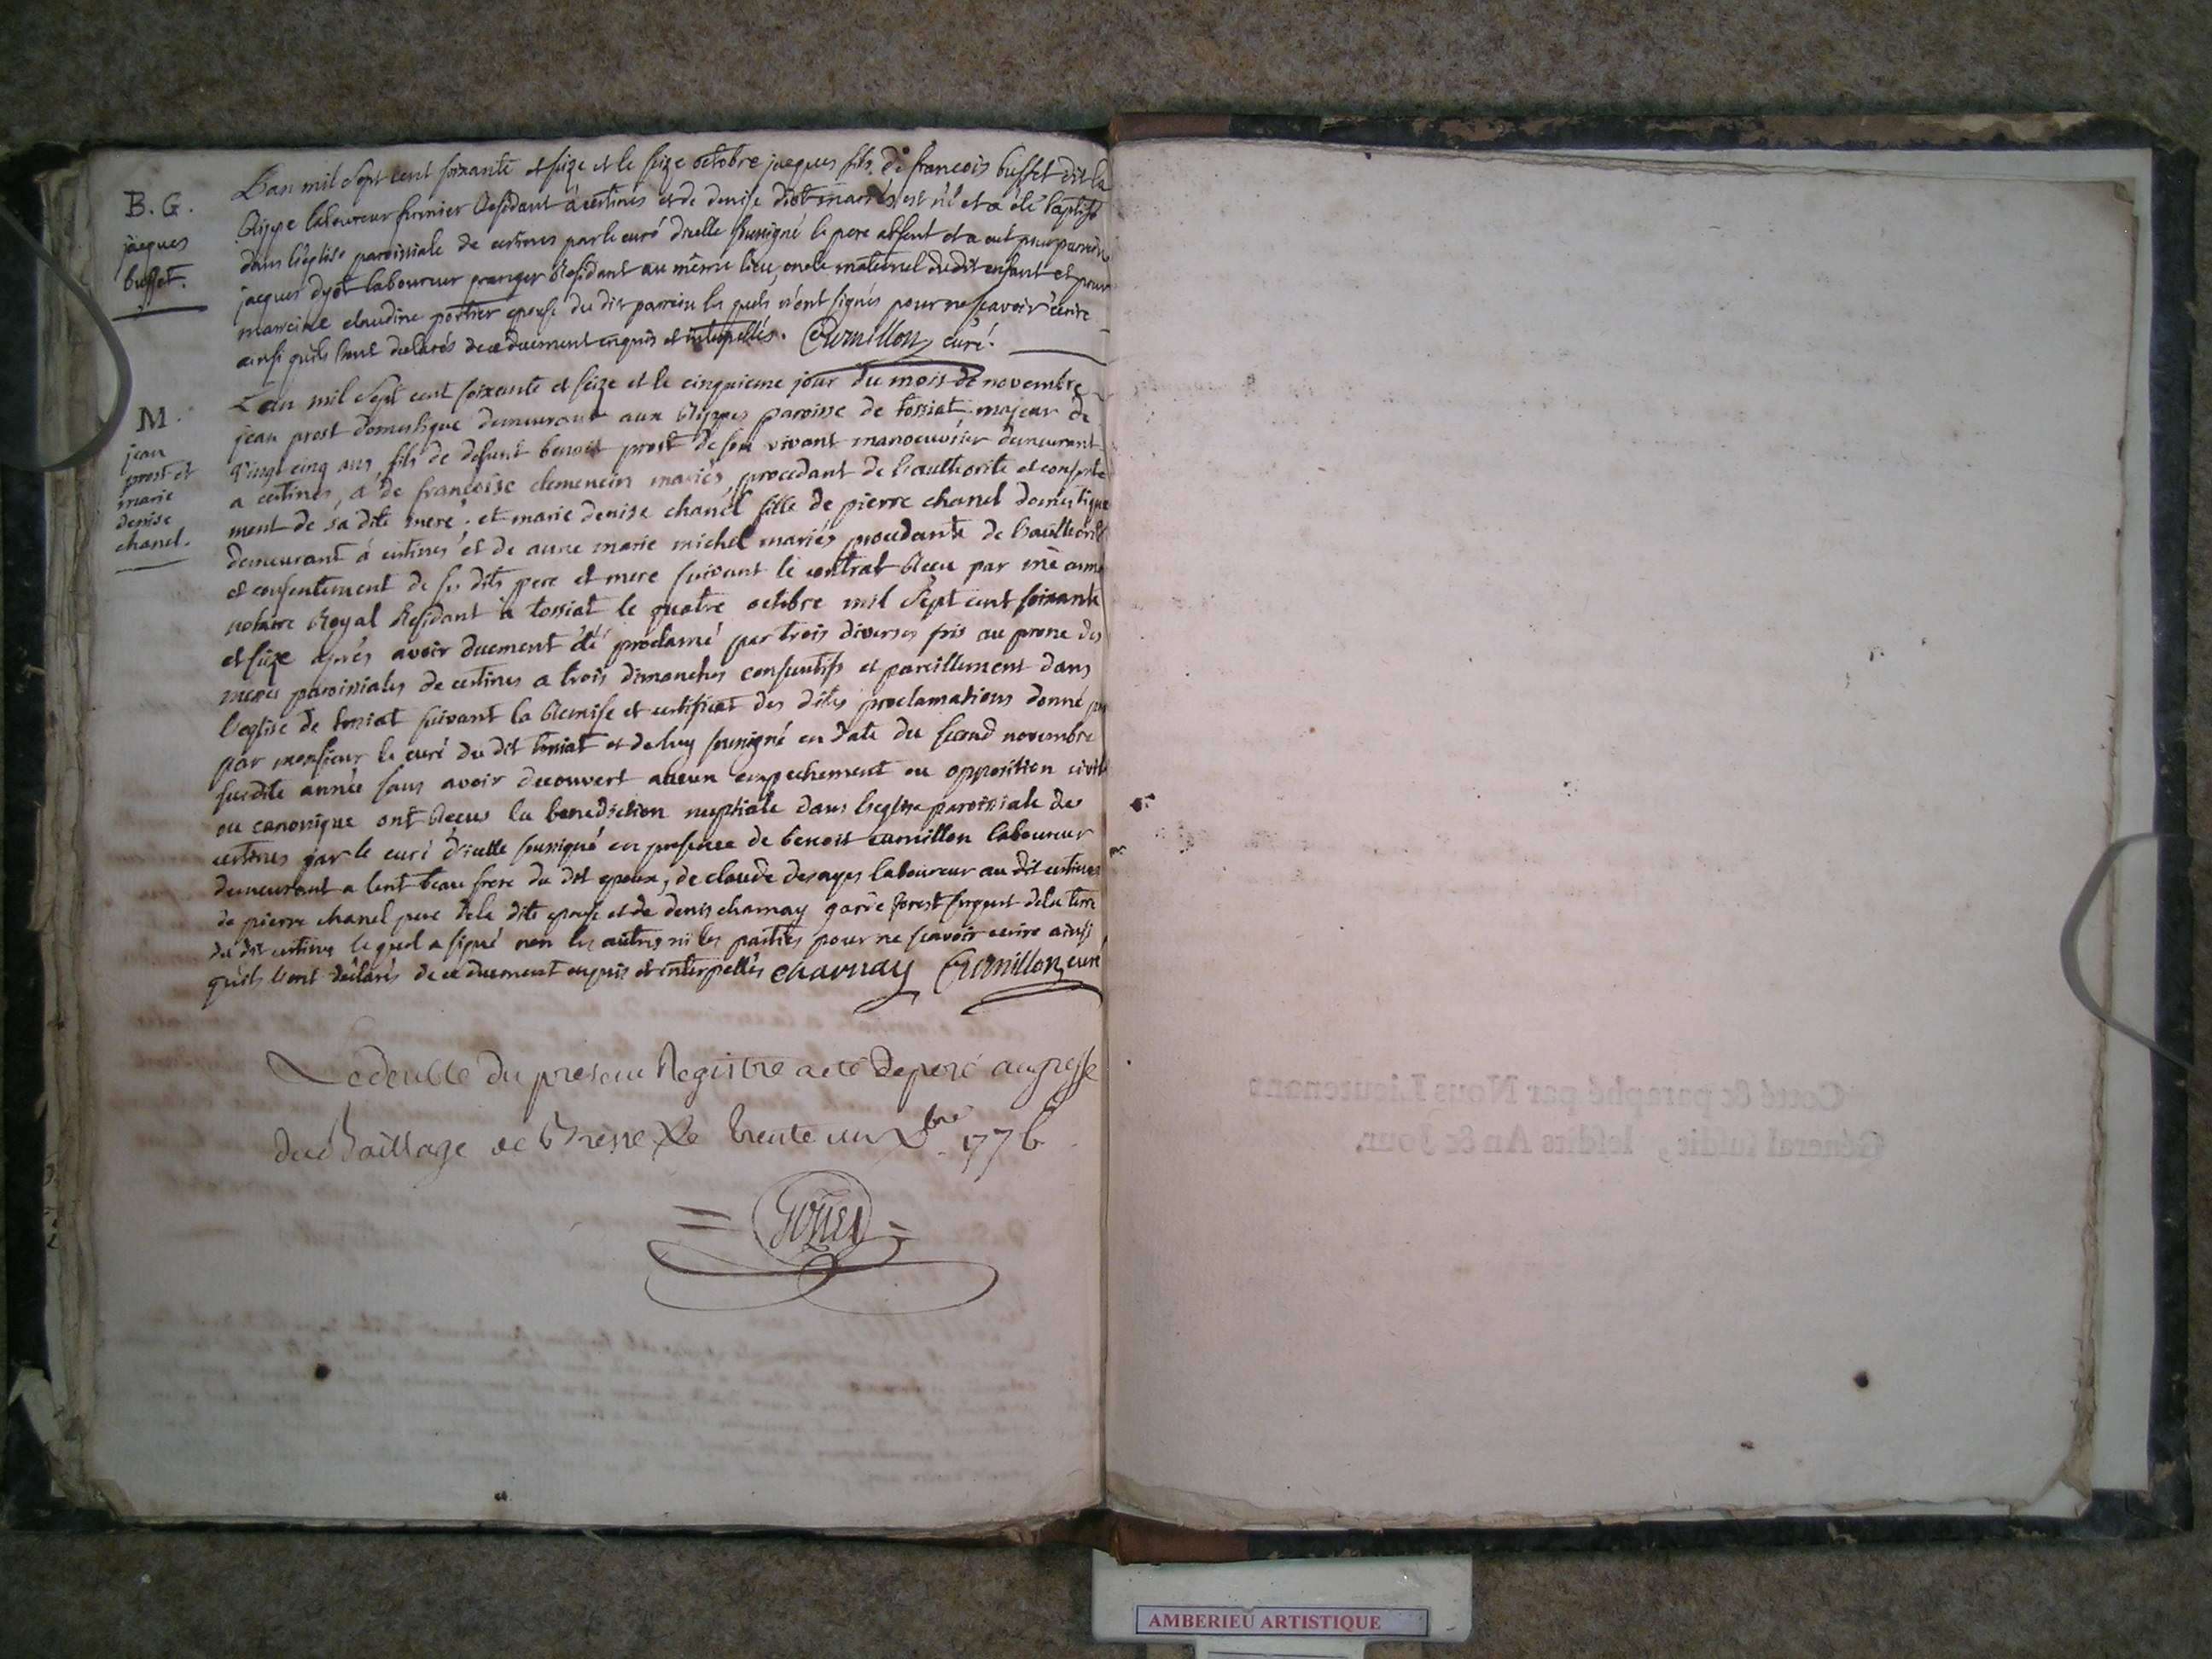 B. G.
jacques
buffet.
L'an mil sept cent soixante et seize et le seize octobre jacques fils de francois buffet dit la
laboureur fermier Residant a certines et de denise diot mariés est né et a été baptisé
dans l'eglise paroissiale de certines par le curé d'icelle soussigné le pere absent et a eut pour parrein
jacques dyot laboureur granger Residant au même lieu, oncle maternel du dit enfant et pour
mareine claudine portier épouse du dit parrein les quels n'ont signés pour ne scavoir écrire
ainsi quils l'ont declarés de ce duement enquis et interpellés. Curnillon curé.
M.
jean
prost et
marie
denise
chanel.
L'an mil sept cent soixante et seize et le cinquieme jour du mois de novembre
jean prost domestique demeurant aux Rippes paroisse de tossiat majeur de
vingt cinq ans, fils de defunt benoit prost de son vivant manoeuvrier demeurant
a certines, & de françoise clemencin mariés, procedant de l'authorite et consente
ment de sa dite mere. et marie denise chanel fille de pierre chanel domestique
demeurant à certines et de anne marie michel mariés procedante de l'authorité
et consentement de ses dits pere et mere suivant le contrat Recu par me
notaire Royal Residant à tossiat le quatre octobre mil sept cent soixante
et seize après avoir duement été proclamé par trois diverses fois au prone des
messes paroissiales de certines a trois dimanches consecutifs et pareillement dans
l'eglise de tossiat suivant la Remise et certificat des dites proclamations donné
par monsieur le curé du dit tossiat et de luy soussigné en date du second novembre
susdite année sans avoir decouvert aucun empechement ou opposition civile
ou canonique ont Recus la benediction nuptiale dans l'eglise paroissiale de
certines par le curé d'icelle soussigné en presence de benoit curnillon laboureur
demeurant a lent beau frere du dit epoux, de claude desayes laboureur au dit certines
de pierre chanel pere de la dite epouse et de denis charnay garde forest sergent de la terre
du dit certines le quel a signé non les autres ni les parties pour ne scavoir ecrire ainsi
quils l'ont déclarés de ce duement enquis et interpellés charnay Curnillon curé
Le double du present Registre a eté deposé au greffe
du Baillage de Bresse Le trente un Xbre 1776
Cotté & paraphé par Nous Lieutenant
Général susdit, lesdits An & Jour.
AMBERIEU ARTISTIQUE